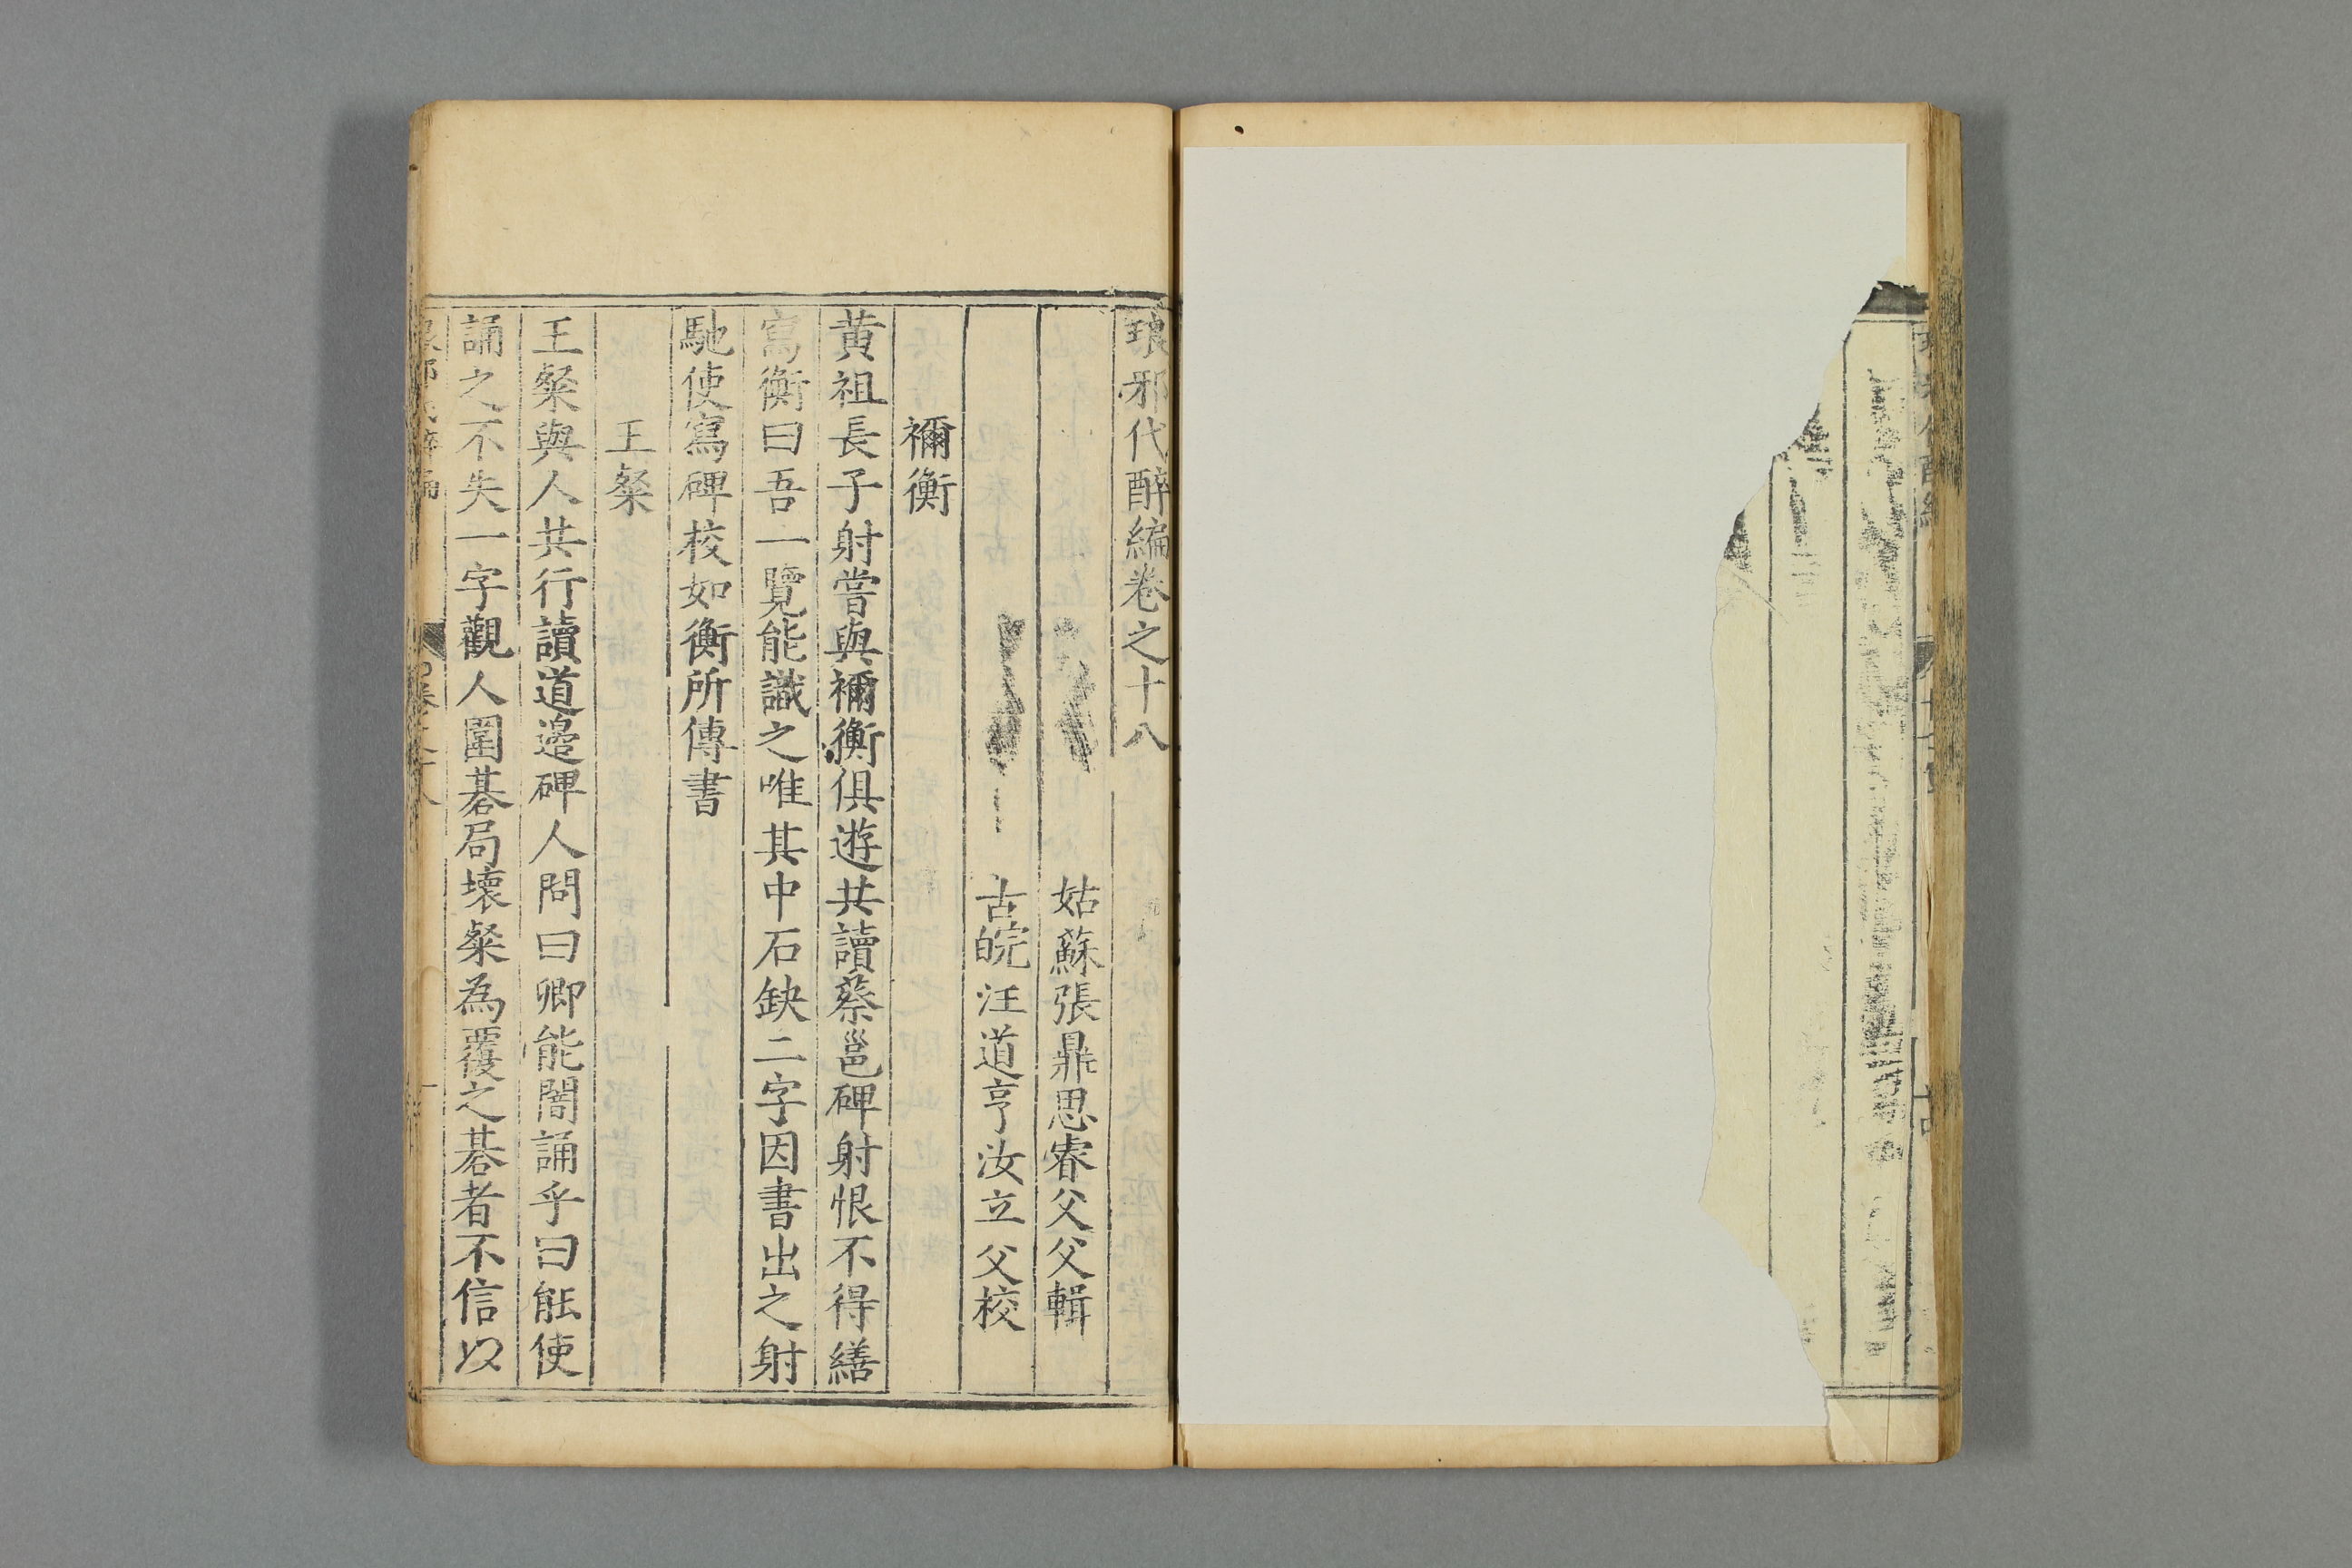 琅邪代醉編卷之十八
姑蘇張鼎思睿父父輯
古皖汪道亨汝立父校
禰衡
黄祖長子射嘗與禰衡俱遊共讀蔡邕碑射恨不得繕
寫衡曰吾一覽能識之唯其中石缺二字因書出之射
馳使寫碑校如衡所傳書
王粲
王粲與人共行讀道邊碑人問曰卿能闇誦乎曰能使
誦之不失一字觀人圍碁局壞粲為覆之碁者不信以